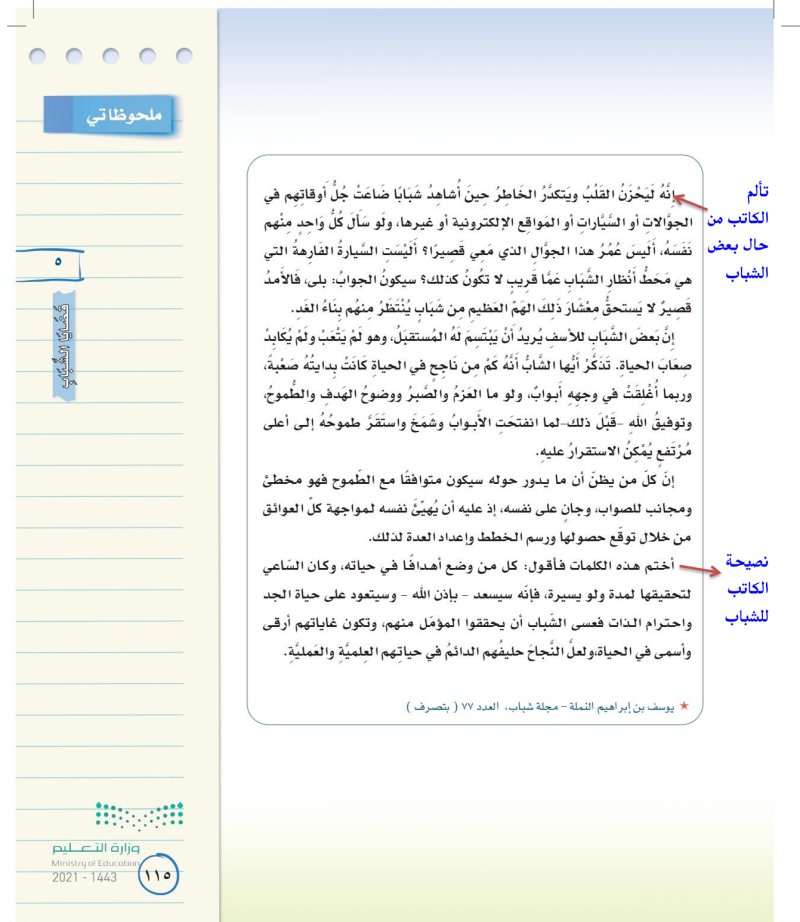 ملحوظاتي
٥
قضايا الشباب
تألم
الكاتب من
حال بعض
الشباب
إنَّهُ لَيَحْزَنُ القَلْبُ ويَتكدَّرُ الخَاطِرُ حِينَ أُشاهِدُ شَبَابًا ضَاعَتْ جُلُّ أوقاتِهِم في
الجوَّالاتِ أو السَّيَّاراتِ أو المَواقعِ الإلكترونية أو غيرها، ولَو سَألَ كُلُّ وَاحِدٍ مِنْهم
نَفسَهُ، أَلَيسَ عُمُرُ هذا الجوَّالِ الذي مَعِي قَصيرًا؟ أَلَيْسَتِ السيارةُ الفَارِهةُ التي
هي مَحَطُّ أَنْظارِ الشَّبَابِ عَمَّا قَريبٍ لا تَكُونُ كَذلكَ؟ سيكونُ الجوابُ: بلى، فَالأمدُ
قَصيرٌ لا يَستحقُّ مِعْشَارَ ذَلِكَ الهَمِّ العَظيمِ مِن شَبَابٍ يُنْتَظَرُ مِنهُم بِنَاءُ الغَدِ.
إنَّ بَعضَ الشَّبابِ للأسفِ يُريدُ أَنْ يَبْتَسِمَ لَهُ المُستقبَلُ، وهو لَمْ يَتْعَبْ ولَمْ يُكَابِدْ
صِعَابَ الحياةِ. تَذكَّرْ أيُّها الشَّابُّ أنَّهُ كَمْ مِن نَاجِحٍ في الحياةِ كَانَتْ بِدايتُهُ صَعْبةً،
وربما أُغْلِقَتْ في وجهِهِ أبوابٌ، ولو ما العَزمُ والصَّبرُ ووضوحُ الهَدفِ والطُّموحُ،
وتوفيقُ اللهِ –قَبْلَ ذلك–لما انفتحَتِ الأبوابُ وشَمَخَ واستَقَرَّ طموحُهُ إلى أعلى
مُرْتَفعٍ يُمْكِنُ الاستقرارُ عليهِ.
إن كلّ من يظن أن ما يدور حوله سيكون متوافقًا مع الطَموح فهو مخطئ
ومجانب للصواب، وجانٍ على نفسه، إذ عليه أن يُهيِّئَ نفسه لمواجهة كلّ العوائق
من خلال توقّع حصولها ورسم الخطط وإعداد العدة لذلك.
نصيحة
الكاتب
للشباب
أختم هذه الكلمات فأقول: كل من وضع أهدافًا في حياته، وكان السَاعي
لتحقيقها لمدة ولو يسيرة، فإنّه سيسعد – بإذن الله – وسيتعود على حياة الجد
واحترام الذات فعسى الشّباب أن يحققوا المؤمّل منهم، وتكون غاياتهم أرقى
وأسمى في الحياة،ولعلَّ النَّجاحَ حليفُهم الدائمُ في حياتِهم العِلميَّةِ والعَمليَّةِ.
★ يوسف بن إبراهيم النملة – مجلة شباب، العدد ٧٧ ( بتصرف )
وزارة التعليم
Ministry of Education
2021 - 1443
١١٥